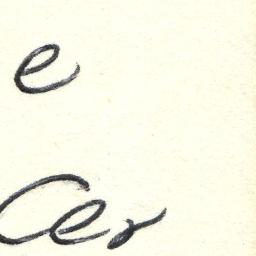 e
Cer